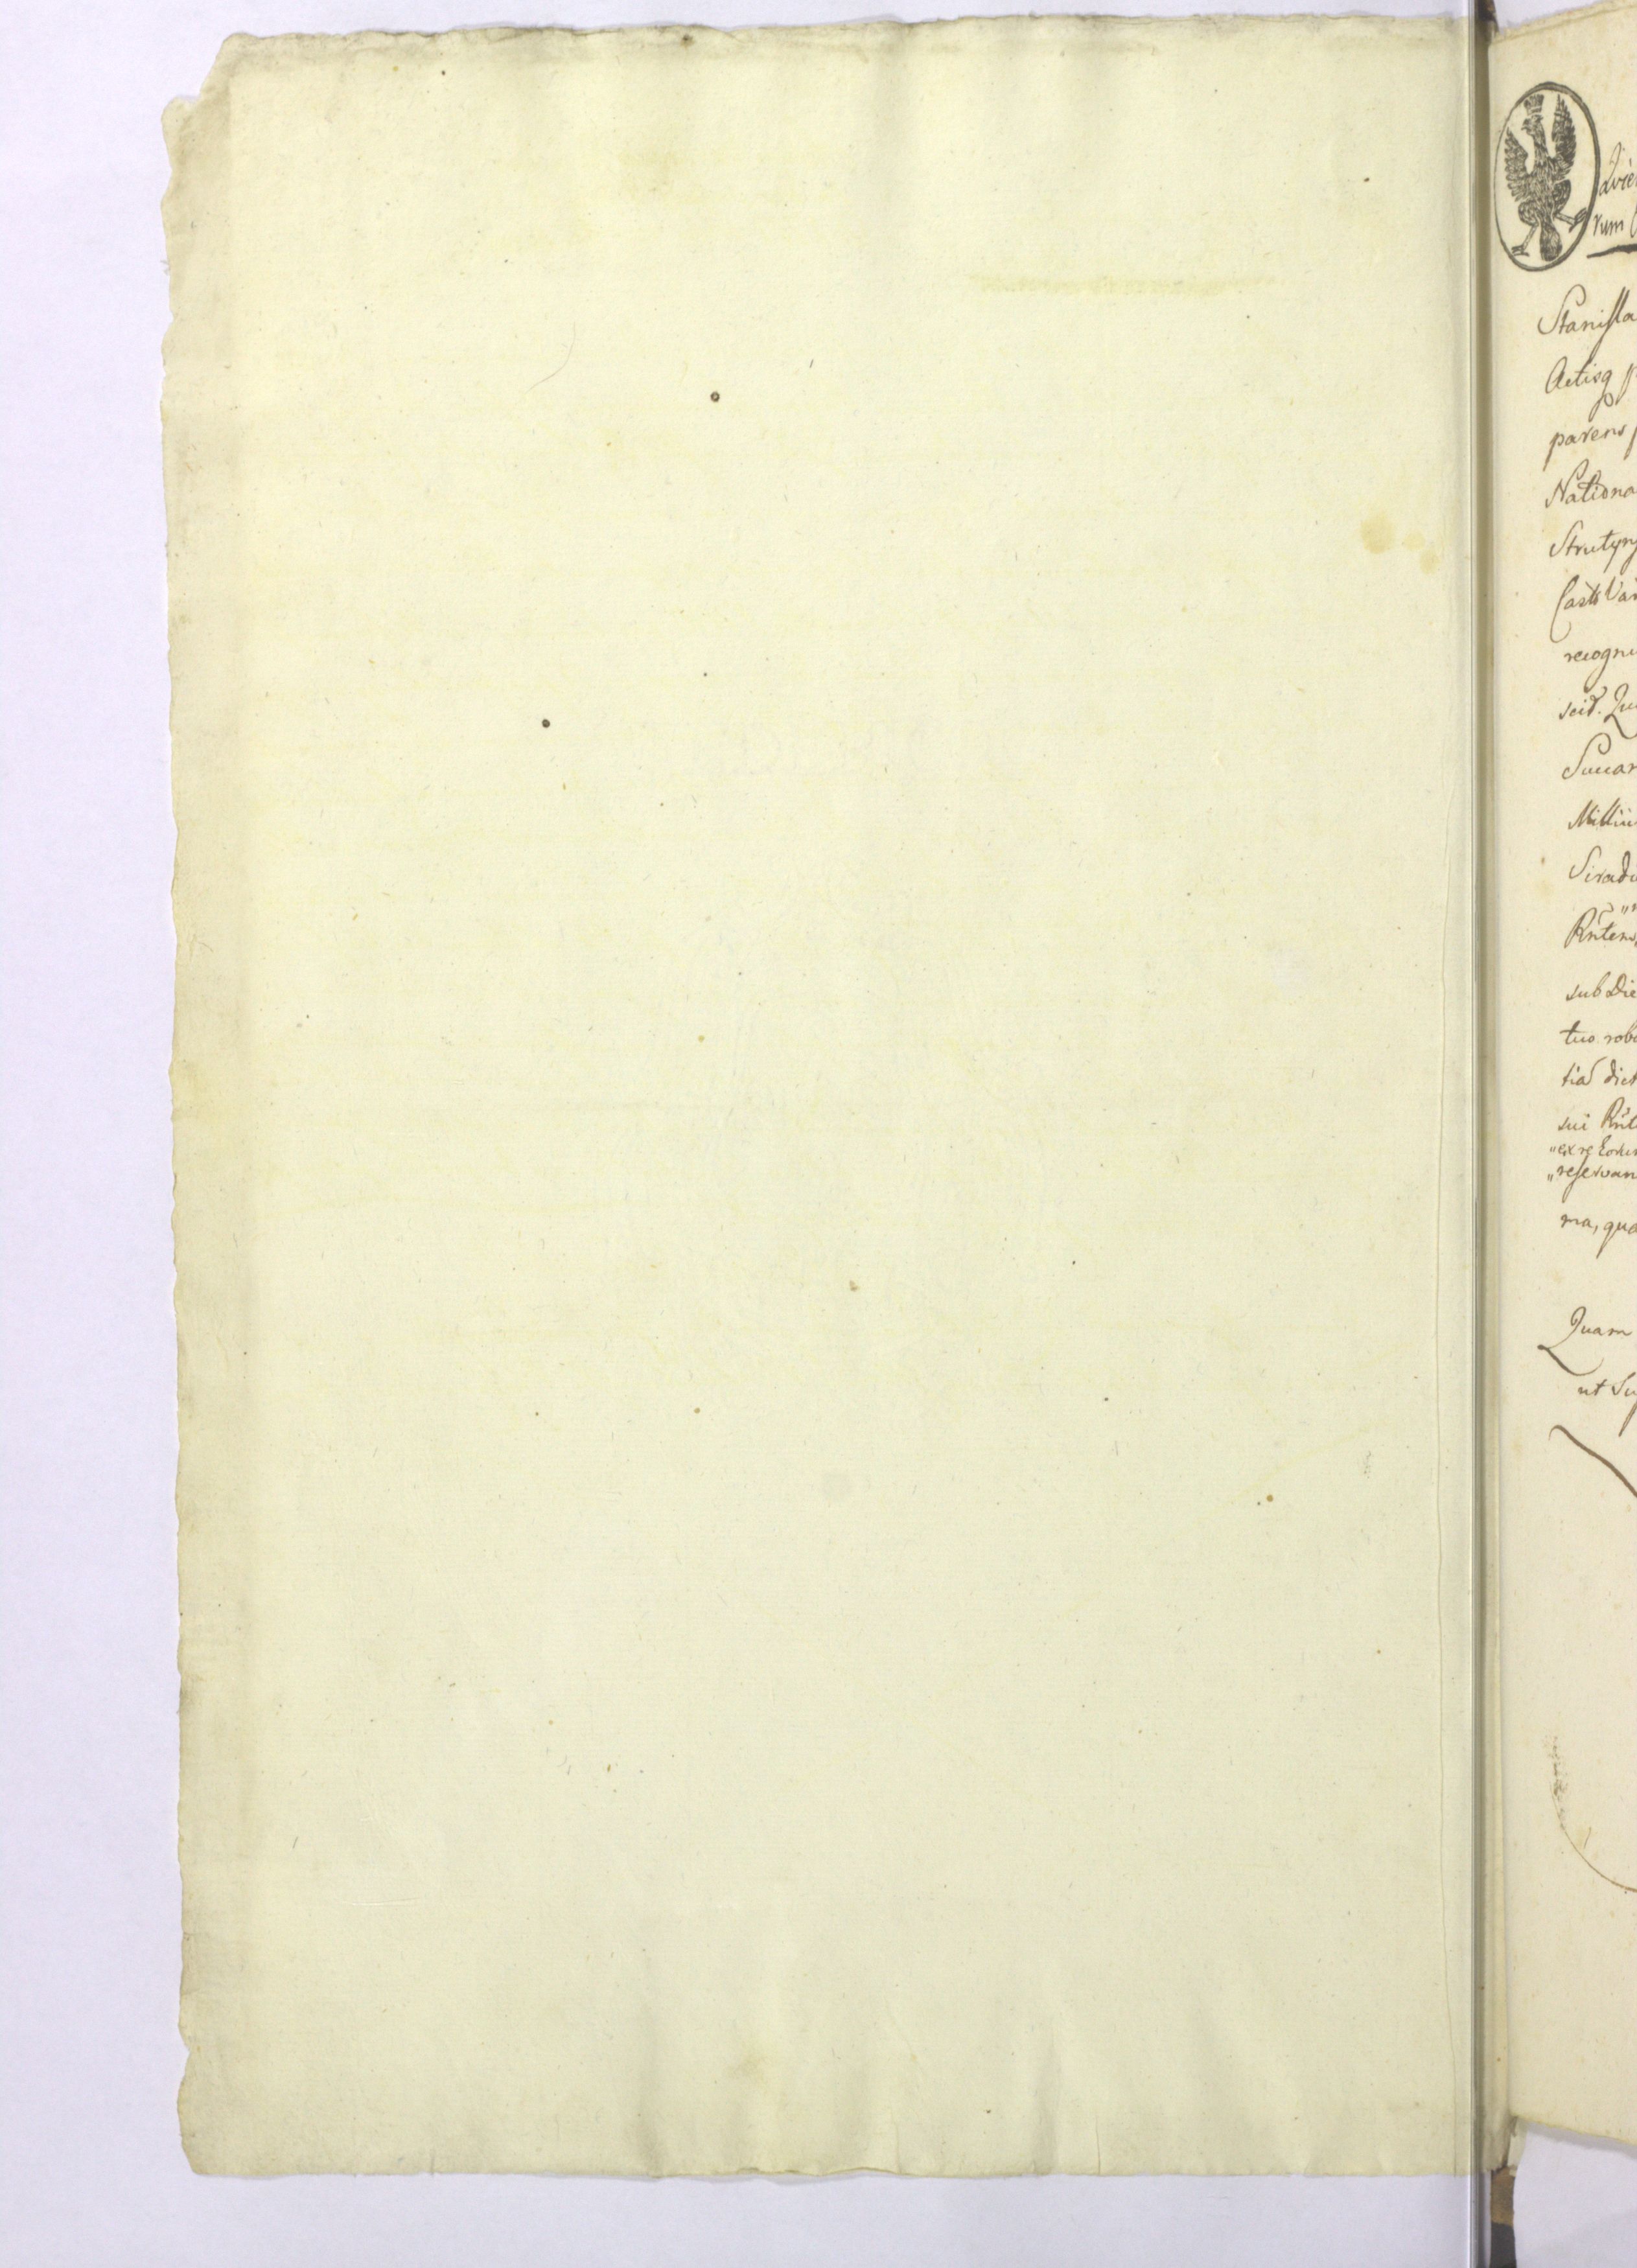 rum
Stanisla
Actisq p
parens
Nationa
Strutyn
Casts Var
recogn
scit. Qu
Succar
Millia
Siradi
Rntens
sub die
tuo rob
tia dict
sui Rnt
"ex re
"reservan
ma, qua
Quam
ut Su